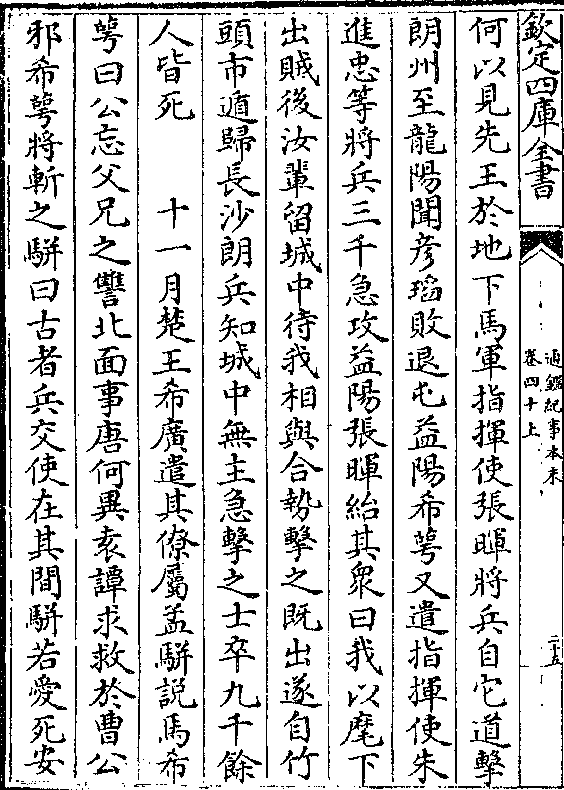 欽定四庫全書
通鑑紀事本末
卷四十上
二十五
何以見先王於地下馬軍指揮使張暉將兵自它道擊
朗州至龍陽聞彦瑫敗退屯益陽希萼又遣指揮使朱
進忠等將兵三千急攻益陽張暉紿其衆曰我以麾下
出賊後汝輩留城中待我相與合勢擊之既出遂自竹
頭市遁歸長沙朗兵知城中無主急擊之士卒九千餘
人皆死　十一月楚王希廣遣其僚屬孟駢説馬希
萼曰公忘父兄之讐北面事唐何異袁譚求救於曹公
邪希萼將斬之駢曰古者兵交使在其間駢若愛死安